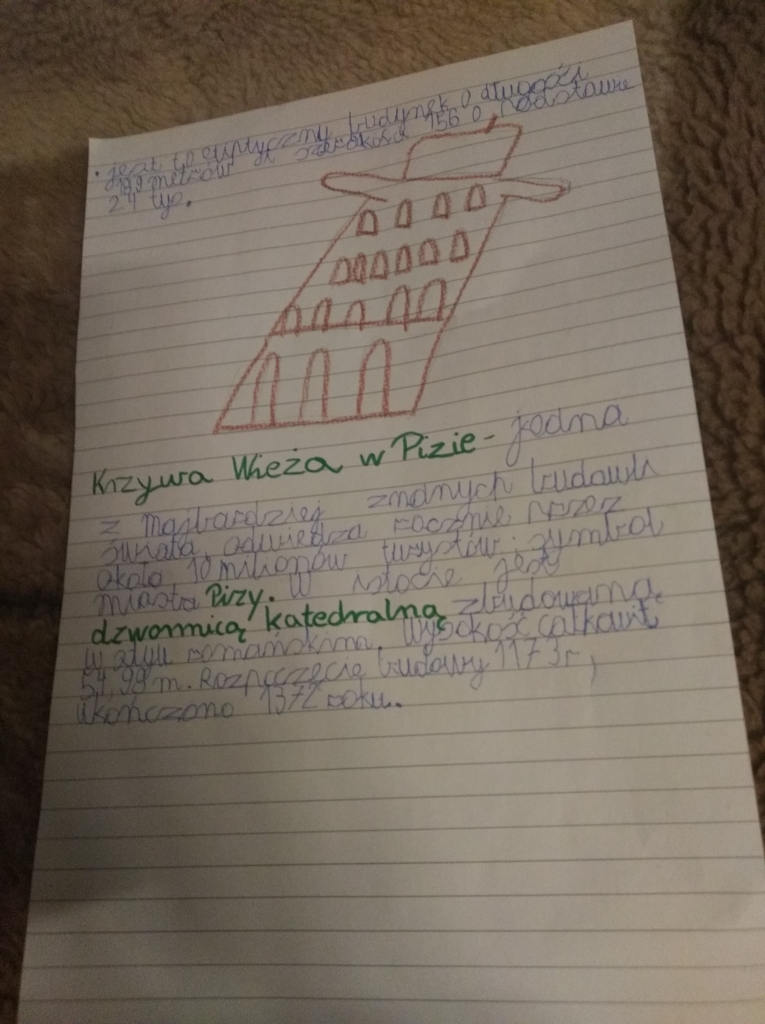 • jest to eliptyczny budynek o długości
189 metrów szerokości 156 o podstawie
24 tyś.
Krzywa Wieża w Pizie - jedna
z najbardziej znanych budowli
świata, odwiedza rocznie przez
około 10 milionów turystów; symbol
miasta Pizy. W istocie jest
dzwonnicą katedralną zbudowaną
w stylu romańskim. Wysokość całkowit.
54,98 m. Rozpoczęcie budowy 1173r,
ukończono 1372 roku.